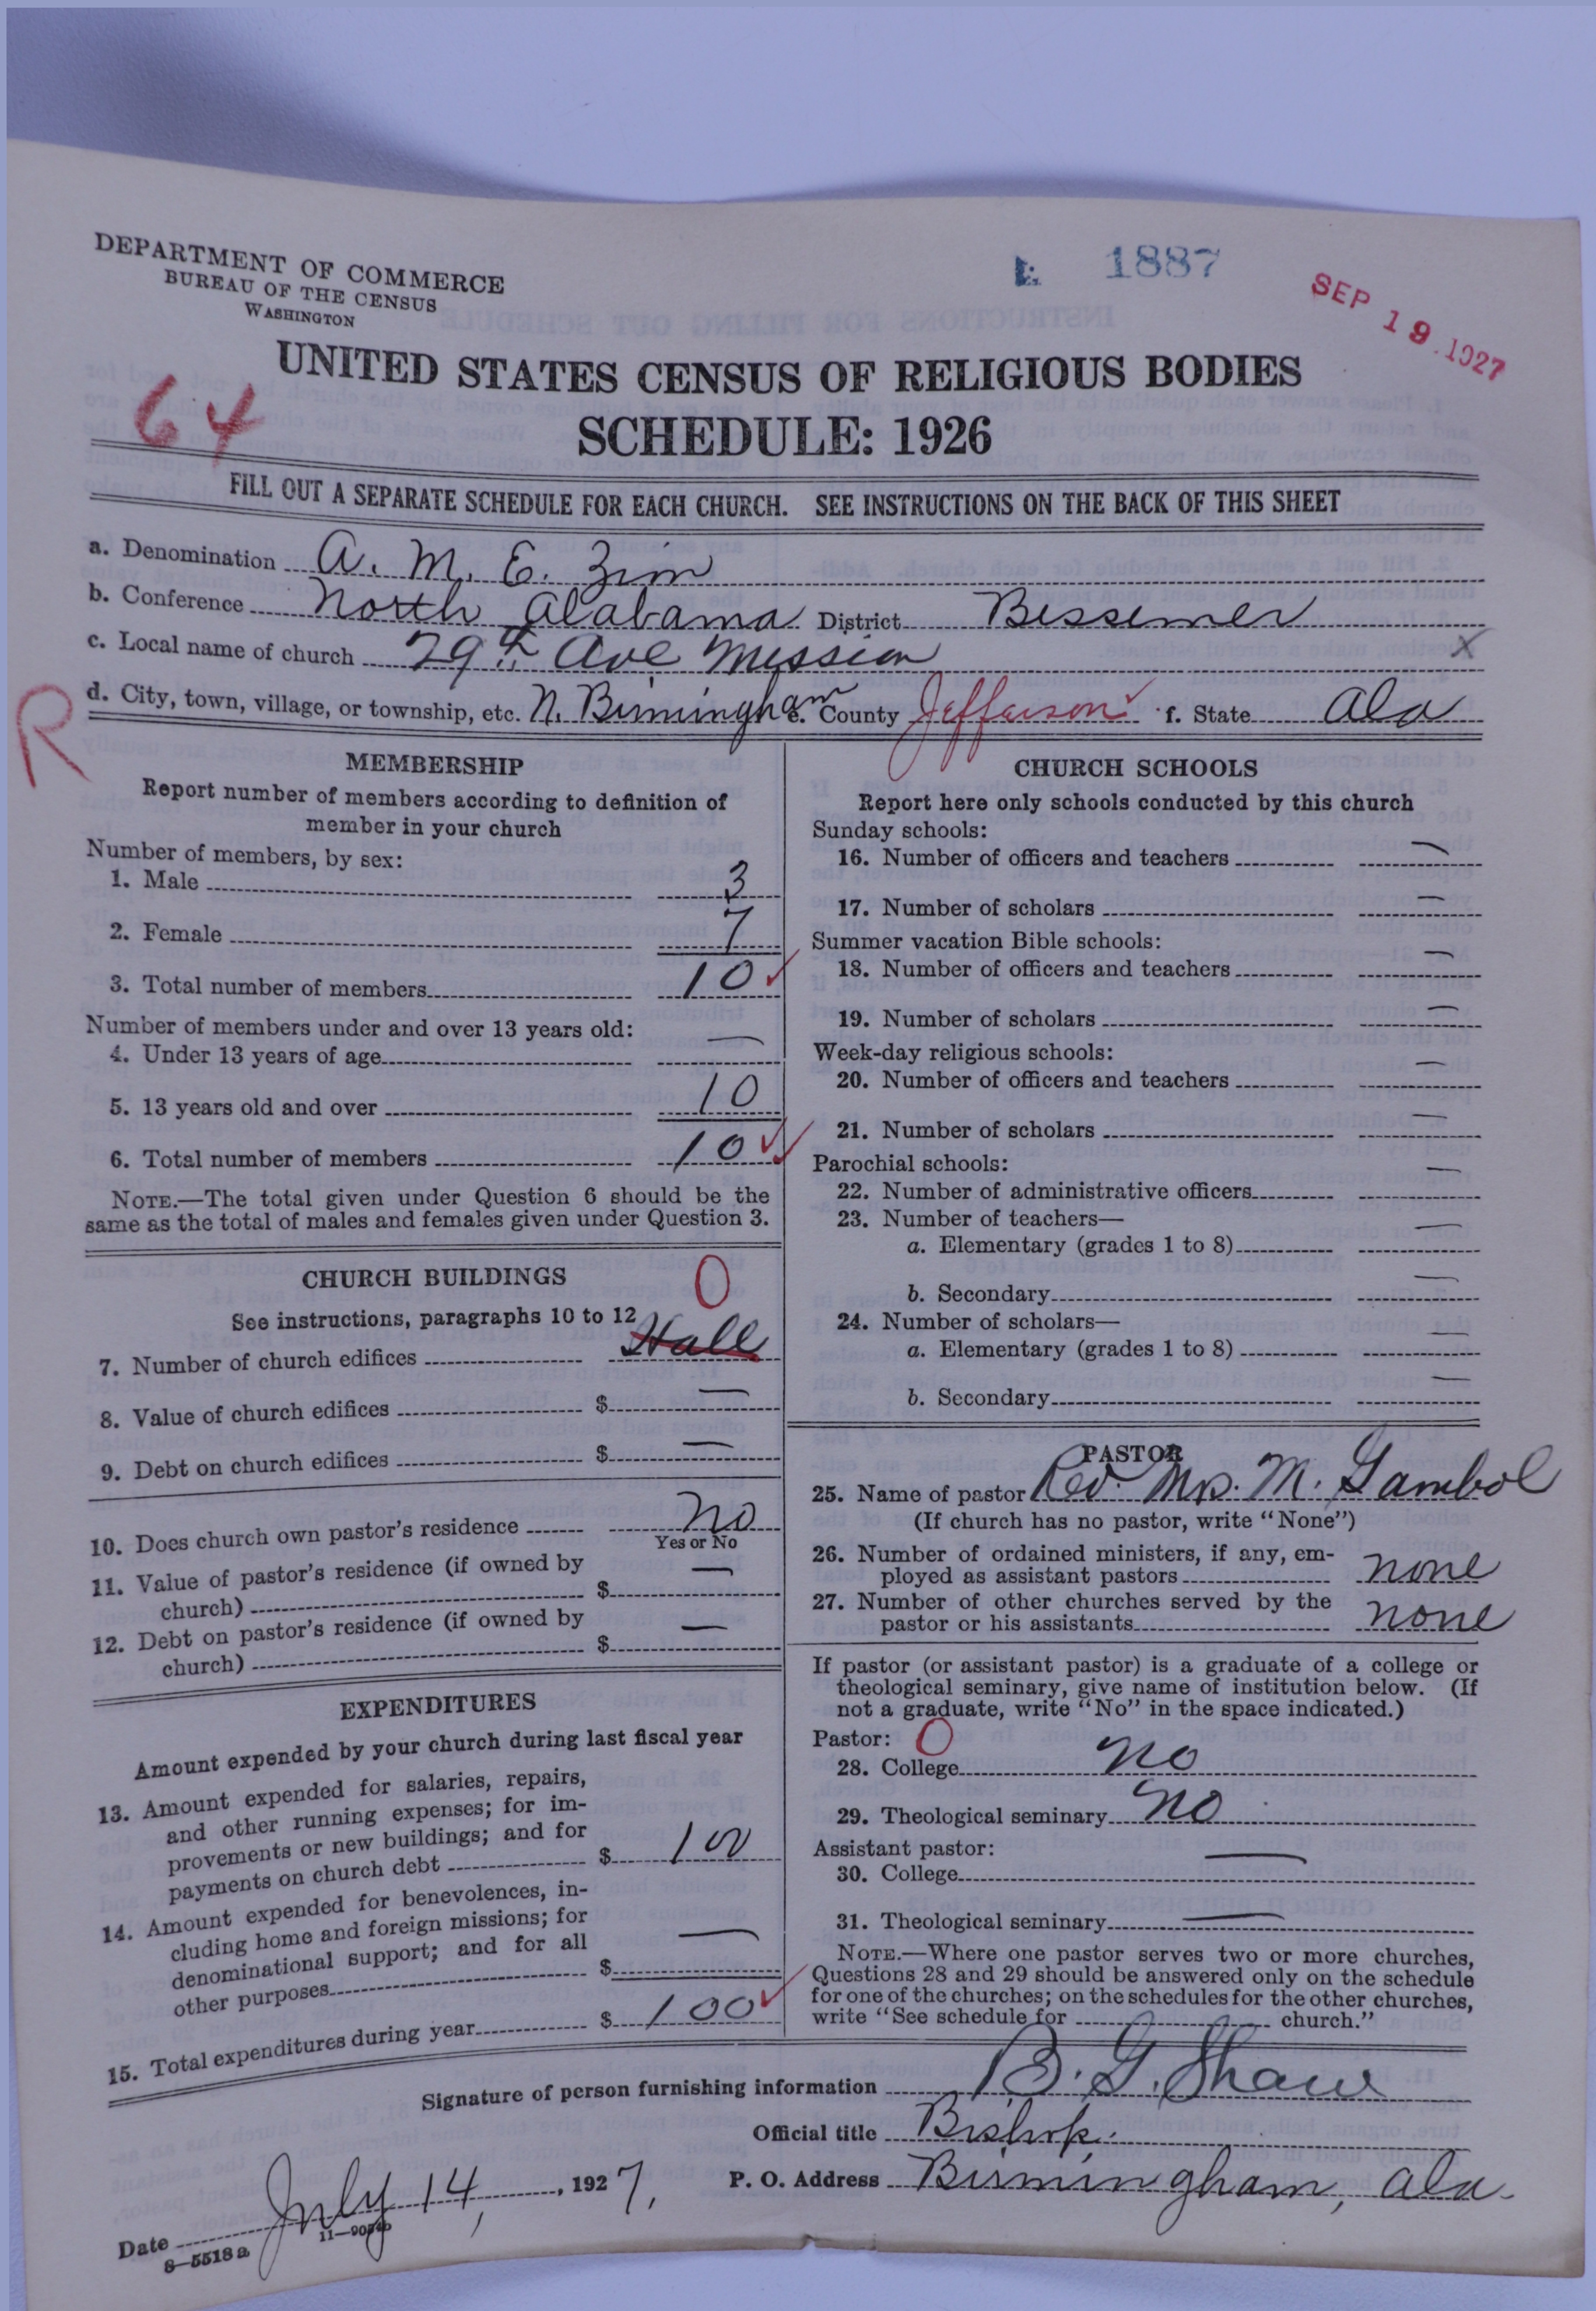 DEPARTMENT OF COMMERCE
BUREAU OF THE CENSUS
WASHINGTON
1887
SEP 19 1927
64
UNITED STATES CENSUS OF RELIGIOUS BODIES
SCHEDULE: 1926
FILL OUT A SEPARATE SCHEDULE FOR EACH CHURCH. SEE INSTRUCTIONS ON THE BACK OF THIS SHEET
a. Denomination A. M. E. Zion
b. Conference North Alabama District Bessemer
c. Local name of church 29th Ave Mission X
R
d. City, town, village, or township, etc. N. Birmingham e. County Jefferson f. State Ala
MEMBERSHIP
Report number of members according to definition of
member in your church
Number of members, by sex:
1. Male 3
2. Female 7
3. Total number of members 10
Number of members under and over 13 years old:
4. Under 13 years of age —
5. 13 years old and over 10
6. Total number of members 10
NOTE.—The total given under Question 6 should be the
same as the total of males and females given under Question 3.
CHURCH BUILDINGS
See instructions, paragraphs 10 to 12
0
7. Number of church edifices Hall
8. Value of church edifices $ —
9. Debt on church edifices $ —
10. Does church own pastor's residence No
Yes or No
11. Value of pastor's residence (if owned by
church) $ —
12. Debt on pastor's residence (if owned by
church) $ —
EXPENDITURES
Amount expended by your church during last fiscal year
13. Amount expended for salaries, repairs,
and other running expenses; for im-
provements or new buildings; and for
payments on church debt $ 100
14. Amount expended for benevolences, in-
cluding home and foreign missions; for
denominational support; and for all
other purposes $ —
15. Total expenditures during year $ 100
CHURCH SCHOOLS
Report here only schools conducted by this church
Sunday schools:
16. Number of officers and teachers —
17. Number of scholars —
Summer vacation Bible schools:
18. Number of officers and teachers —
19. Number of scholars —
Week-day religious schools:
20. Number of officers and teachers —
21. Number of scholars —
Parochial schools:
22. Number of administrative officers —
23. Number of teachers—
a. Elementary (grades 1 to 8) —
b. Secondary —
24. Number of scholars—
a. Elementary (grades 1 to 8) —
b. Secondary —
PASTOR
25. Name of pastor Rev. Mrs. M. Gambol
(If church has no pastor, write "None")
26. Number of ordained ministers, if any, em-
ployed as assistant pastors none
27. Number of other churches served by the
pastor or his assistants none
If pastor (or assistant pastor) is a graduate of a college or
theological seminary, give name of institution below. (If
not a graduate, write "No" in the space indicated.)
Pastor: 0
28. College No
29. Theological seminary No
Assistant pastor:
30. College —
31. Theological seminary —
NOTE.—Where one pastor serves two or more churches,
Questions 28 and 29 should be answered only on the schedule
for one of the churches; on the schedules for the other churches,
write "See schedule for church."
Signature of person furnishing information B. G. Shaw
Official title Bishop.
Date July 14, 1927, P. O. Address Birmingham, Ala.
8—5518a 11—9054b